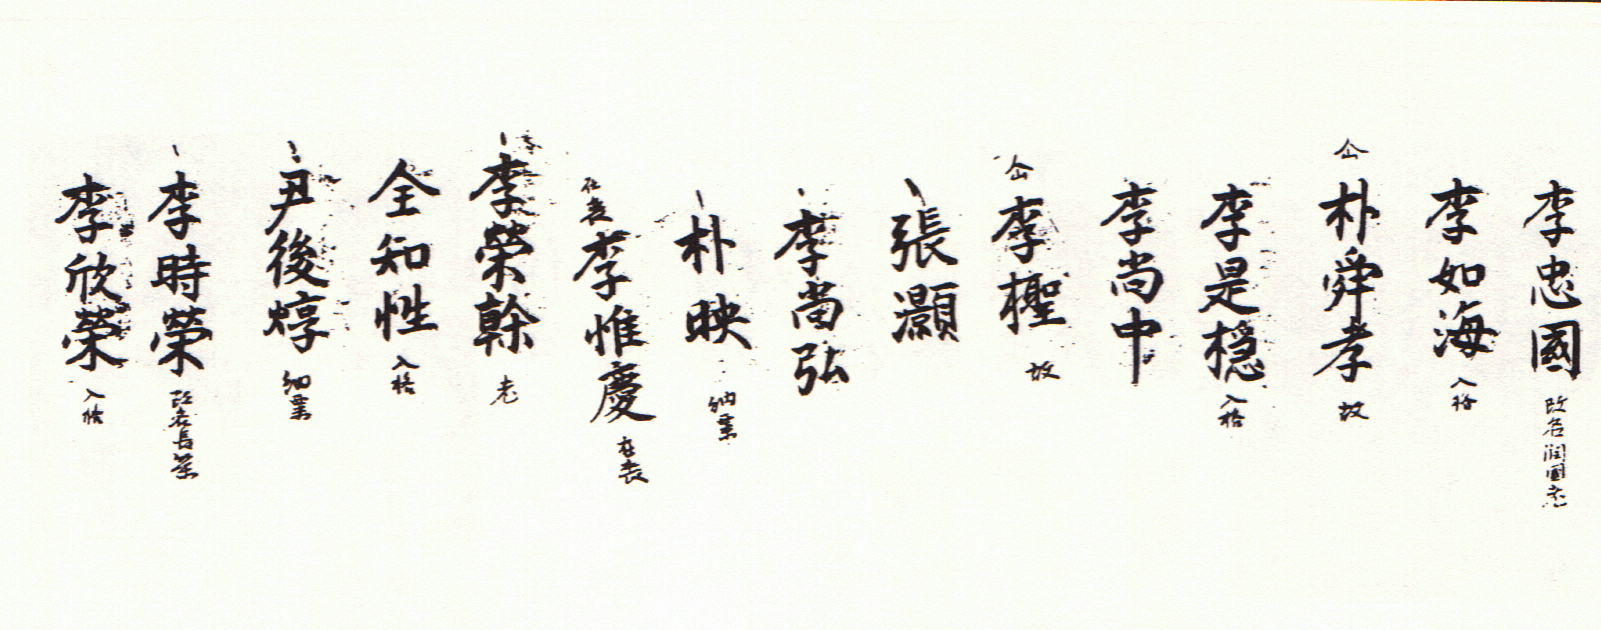 李忠國 改名潤國 老
李如海 入格
仚 朴舜孝 故
李是穩 入格
李尚中
仚 李檉 故
張灝
李尚弘
朴映 納業
在喪 李惟慶 在喪
李榮幹 老
全知性 入格
尹後焞 納業
李時榮 改名長榮
李欣榮 入格